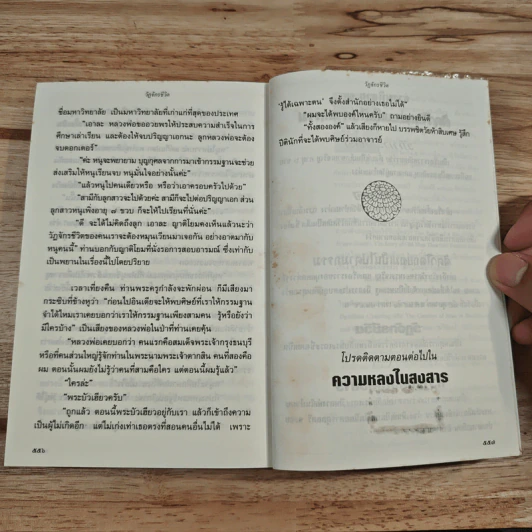 วัฏจักรชีวิต
ชื่อมหาวิทยาลัย เป็นมหาวิทยาลัยที่เก่าแก่ที่สุดของประเทศ
"เอาละ หลวงพ่อขออวยพรให้ประสบความสำเร็จในการ
ศึกษาเล่าเรียน และต้องให้จบปริญญาเอกนะ ลูกหลวงพ่อจะต้อง
จบดอกเตอร์"
"ค่ะ หนูจะพยายาม บุญกุศลจากการมาเข้ากรรมฐานจะช่วย
ส่งเสริมให้หนูเรียนจบ หนูมั่นใจอย่างนั้นค่ะ"
"แล้วหนูไปคนเดียวหรือ หรือว่าเอาครอบครัวไปด้วย"
"สามีกับลูกสาวจะไปด้วยค่ะ สามีก็จะไปต่อปริญญาเอก ส่วน
ลูกสาวหนูเพิ่งอายุ ๗ ขวบ ก็จะให้ไปเรียนที่นั่นค่ะ"
"ดี จะได้ไม่คิดถึงลูก เอาละ ญาติโยมคงเห็นแล้วนะว่า
วัฏจักรชีวิตของคนเราจะต้องหมุนเวียนมาเจอกัน อย่างอาตมากับ
หนูคนนี้" ท่านบอกกับญาติโยมที่นั่งรอการสอบอารมณ์ ซึ่งเท่ากับ
เป็นพยานในเรื่องนี้ไปโดยปริยาย
เวลาเที่ยงคืน ท่านพระครูกำลังจะพักผ่อน ก็มีเสียงมา
กระซิบที่ข้างหูว่า "ก่อนไปอินเดียจะให้พบศิษย์ที่เราให้กรรมฐาน
จำได้ไหมเราเคยบอกว่าเราให้กรรมฐานเพียงสามคน รู้หรือยังว่า
มีใครบ้าง" เป็นเสียงของหลวงพ่อในป่าที่ท่านเคยคุ้น
"หลวงพ่อเคยบอกว่า คนแรกคือสมเด็จพระเจ้ากรุงธนบุรี
หรือที่คนส่วนใหญ่รู้จักท่านในพระนามพระเจ้าตากสิน คนที่สองคือ
ผม ตอนนั้นผมยังไม่รู้ว่าคนที่สามคือใคร แต่ตอนนี้ผมรู้แล้ว"
"ใครล่ะ"
"พระบัวเฮียวครับ"
"ถูกแล้ว ตอนนี้พระบัวเฮียวอยู่กับเรา แล้วก็เข้าถึงความ
เป็นผู้ไม่เกิดอีก แต่ไม่เก่งเท่าเธอตรงที่สอนคนอื่นไม่ได้ เพราะ
๕๕๖
วัฏจักรชีวิต
'รู้ได้เฉพาะตน' จึงตั้งสำนักอย่างเธอไม่ได้"
"ผมจะได้พบองค์ไหนครับ" ถามอย่างยินดี
"ทั้งสององค์" แล้วเสียงก็หายไป บรรพชิตวัยห้าสิบเศษ รู้สึก
ปีตินักที่จะได้พบศิษย์ร่วมอาจารย์
โปรดติดตามตอนต่อไปใน
ความหลงในสงสาร
๕๕๗